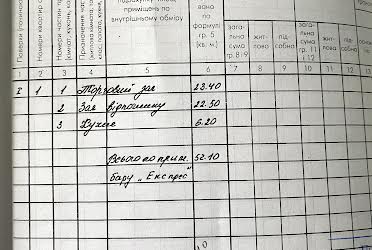 Поверхи (починаючи
Номери квартир
Номери частин
(кімнат, кухонь,
Призначення частин
(житлова кімната,
клас, палата, кухня,
приміщень по
внутрішньому обміру
вана
по
формулі
гр. 5
(кв. м.)
зага-
льна
сума
гр. 8 і 9
жит-
лова
під-
собна
зага-
льна
сума
гр. 11
і 12
жит-
лова
під-
собна
1 2 3 4 5 6 7 8 9 10 11 12 13
I 1 1 Торговий зал 23.40
2 Зал відпочинку 22.50
3 Кухня 6.20
Всього по прим. 52.10
бару „Експрес"